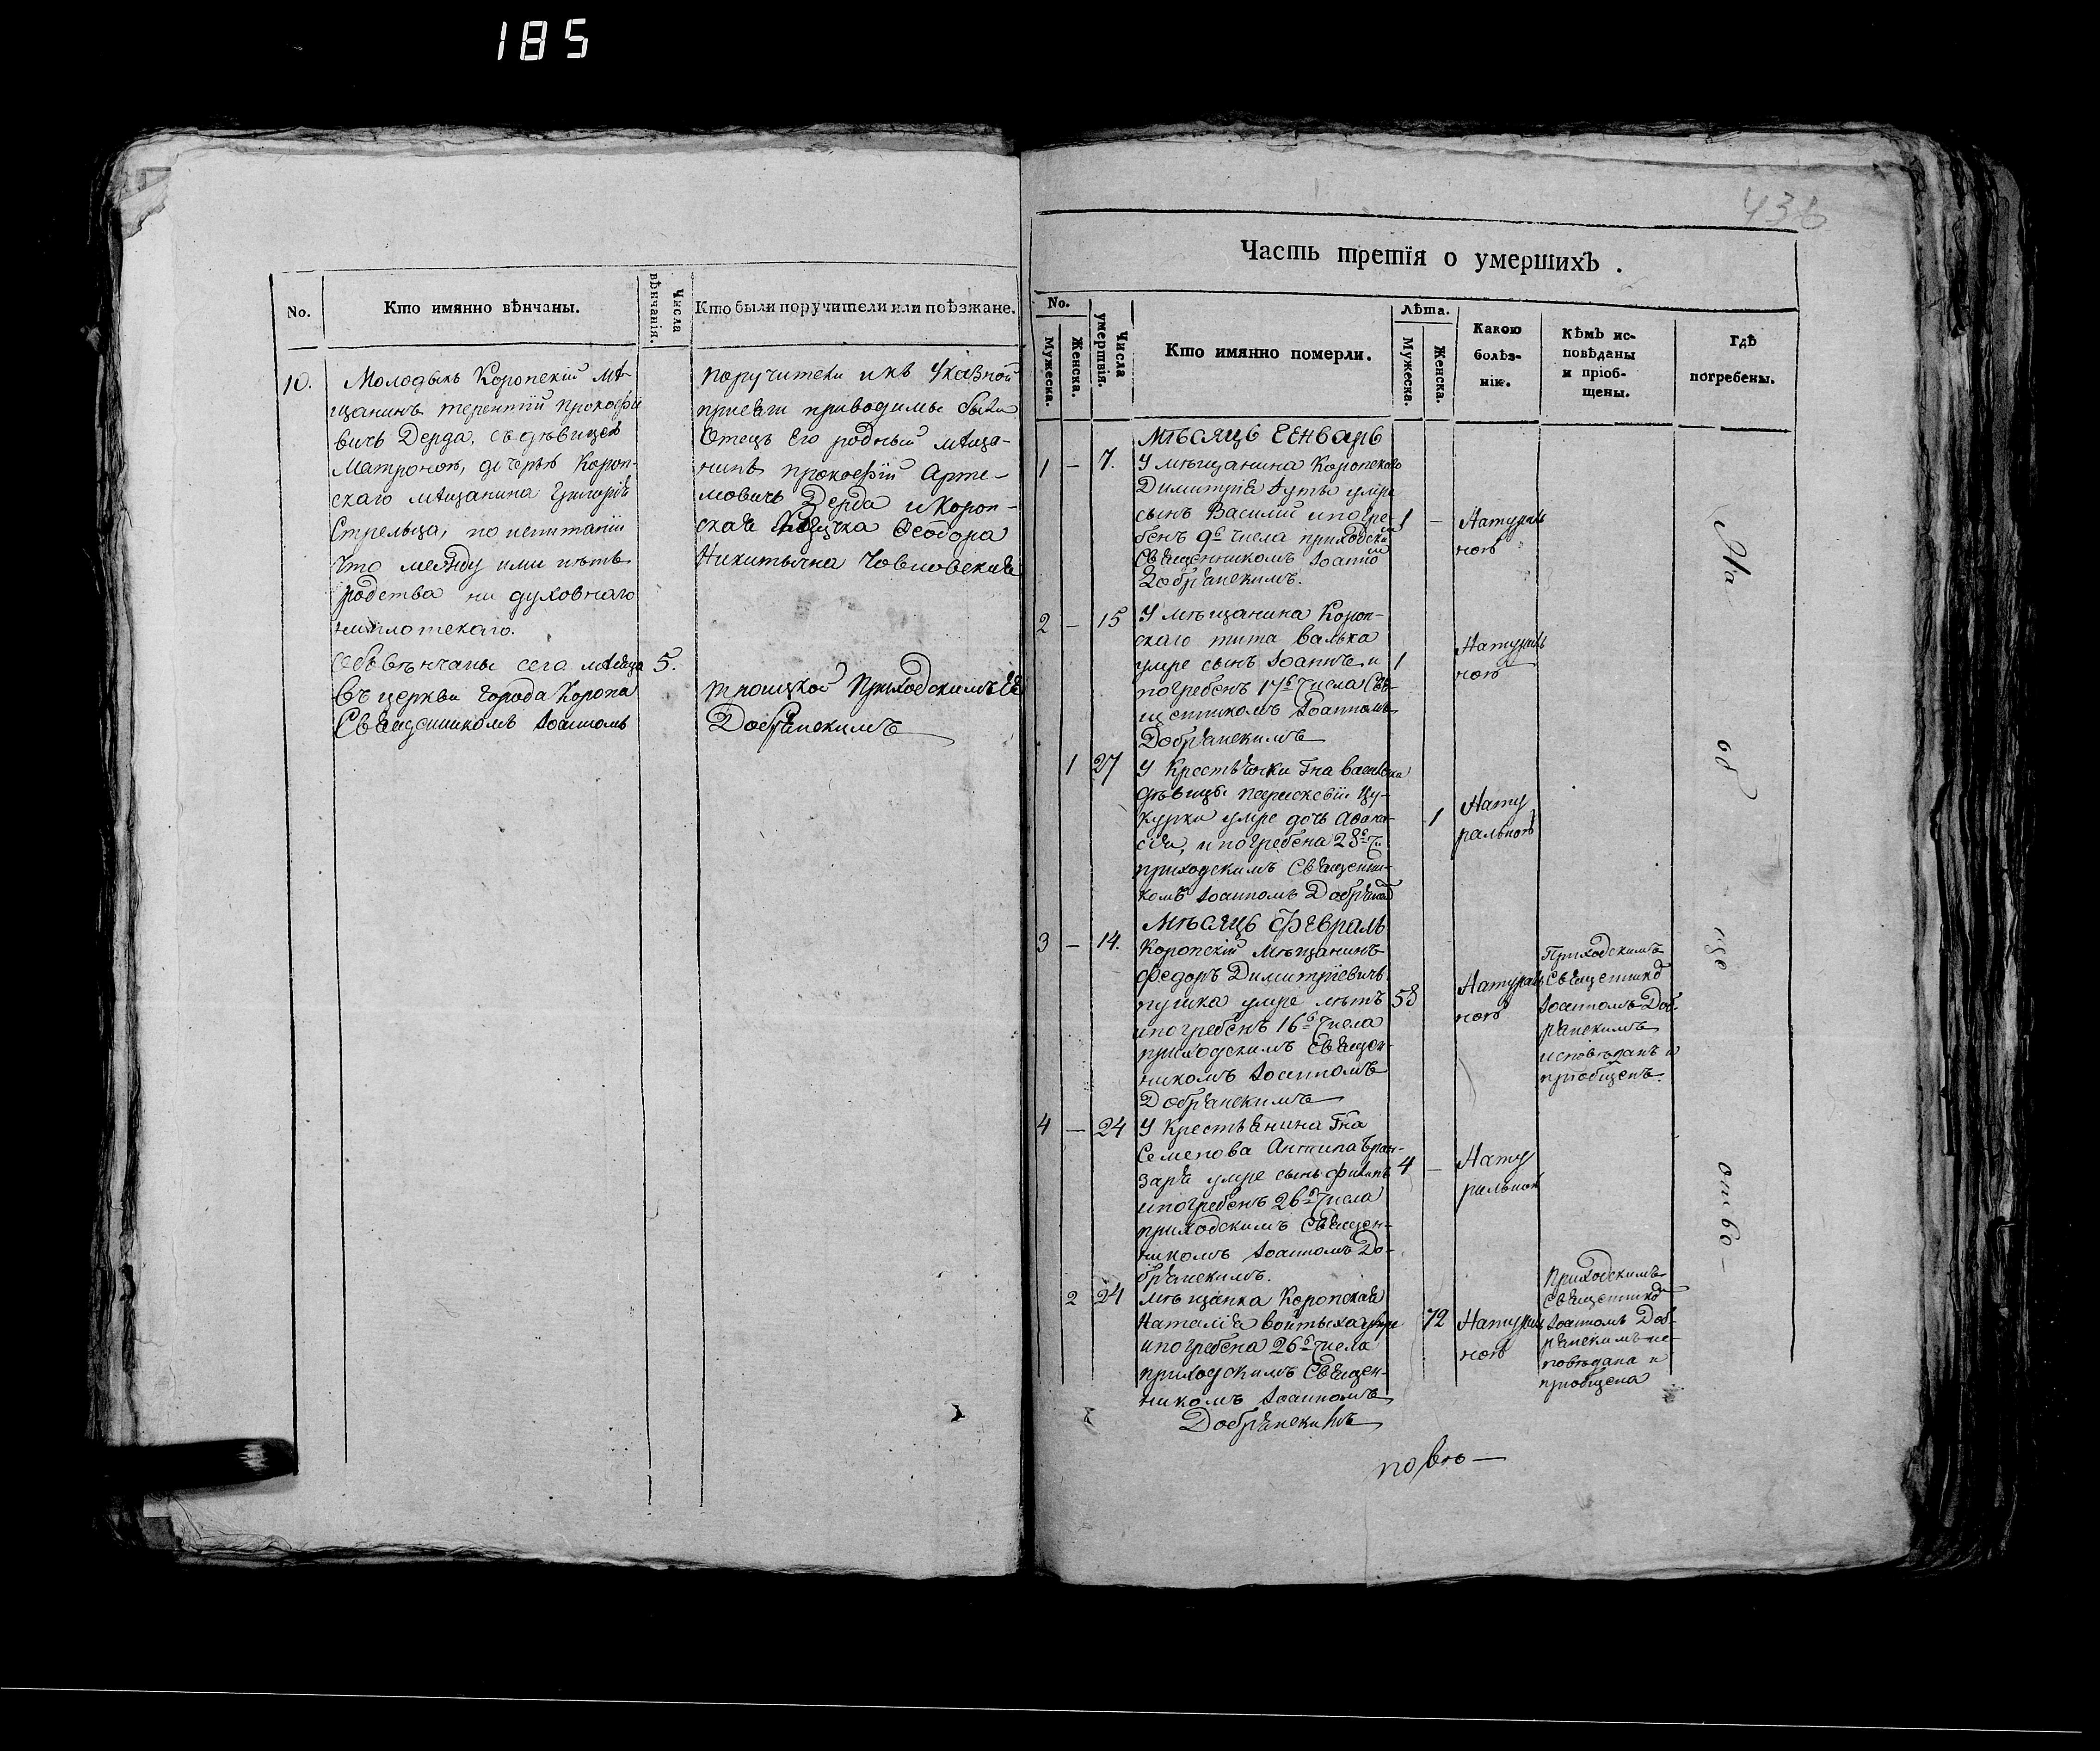 185
No.
Кто имянно вѣнчаны.
Числа вѣнчанія.
Кто были поручители или поѣзжане.
10.
Молодыкъ Коропскій мѣ-
щанинъ терентій прокофіе
вичъ Дерда, съ дѣвицею
Матроною, дочерью Короп-
скаго мѣщанина Григорія
Стрельца, по испитаніи
что между ими нѣтъ
родства ни духовнаго
ни плотскаго.
Обвѣнчаны сего мѣсяца 5.
въ церкви города Коропа
Священникомъ Іоанномъ
поручители икъ Указной
присяги приводимы были
Отецъ Его родный мѣща-
нинъ прокофій Арте-
мовичъ Дерда и Короп-
ская Ѳеодора
Никитична
троицкой Приходскимъ
Добрянскимъ
436
Часть третія о умершихъ .
No.
Мужеска.
Женска.
Числа умертвія.
Кто имянно померли.
Лѣта.
Мужеска.
Женска.
Какою болѣз-
нію.
Кѣмъ ис-
повѣданы
и пріоб-
щены.
Гдѣ
погребены.
Мѣсяцъ Генварь
1 – 7. У мѣщанина Коропскаго
Димитрія умре
сынъ Василій и погре- 1 – Натураль
бенъ 9го числа приходским ною
Священникомъ Іоанно
Добрянскимъ.
2 – 15 У мѣщанина Короп-
скаго тита валька Натураль
умре сынъ Іоаннъ и 1 ною
погребенъ 17го числа Свя-
щенникомъ Іоанномъ
Добрянскимъ
1 27 У Крестьянки Гна
дѣвицы параскевіи Цу-
курки умре дочь Афана- 1 Нату
сія, и погребена 28го чи ральною
приходскимъ Священни-
комъ Іоанномъ Добрянс
Мѣсяцъ Февраль
3 – 14. Коропскій Мѣщанинъ
Федоръ Димитріевичъ
пушка умре лѣтъ 58 Натураль
и погребенъ 16го числа ною
приходскимъ Священ-
никомъ Іоанномъ
Добрянскимъ
Приходскимъ
Священнико
Іоанномъ Доб-
рянскимъ
исповѣданъ и
пріобщенъ.
4 – 24 У Крестьянина Гна
Семенова Антипа
умре сынъ филипъ 4 – Нату
и погребенъ 26го числа ральною
приходскимъ Священ-
никомъ Іоанномъ До-
брянскимъ.
2 24 мѣщанка Коропская
Наталія умре 72 Натураль
и погребена 26го числа ною
приходскимъ Священ-
никомъ Іоанномъ
Добрянскимъ
Приходскимъ
Священнико
Іоанномъ Доб-
рянскимъ ис-
повѣдана и
пріобщена
На
об
ще
отво-